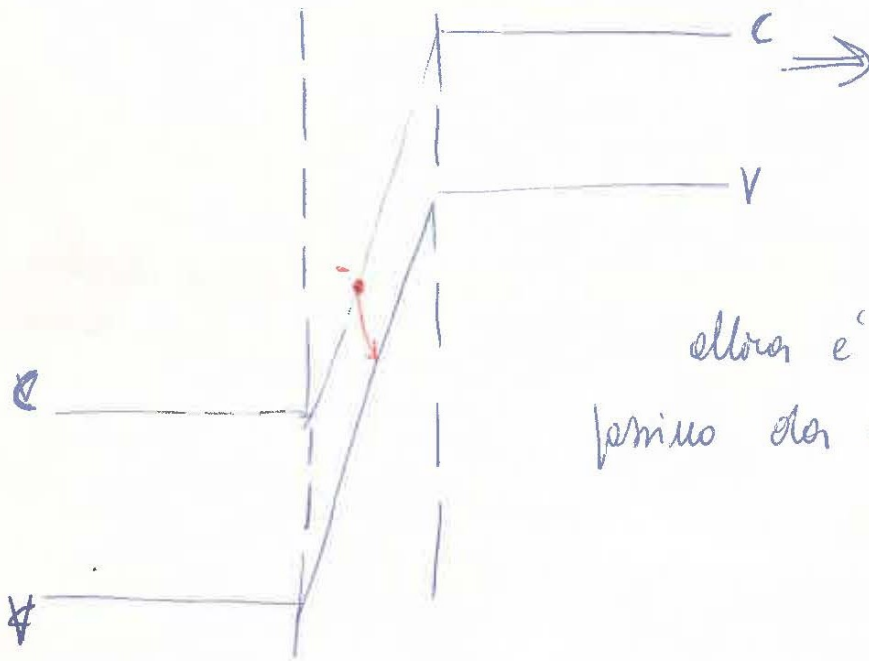 C
V
allora e'
passino da
C
V